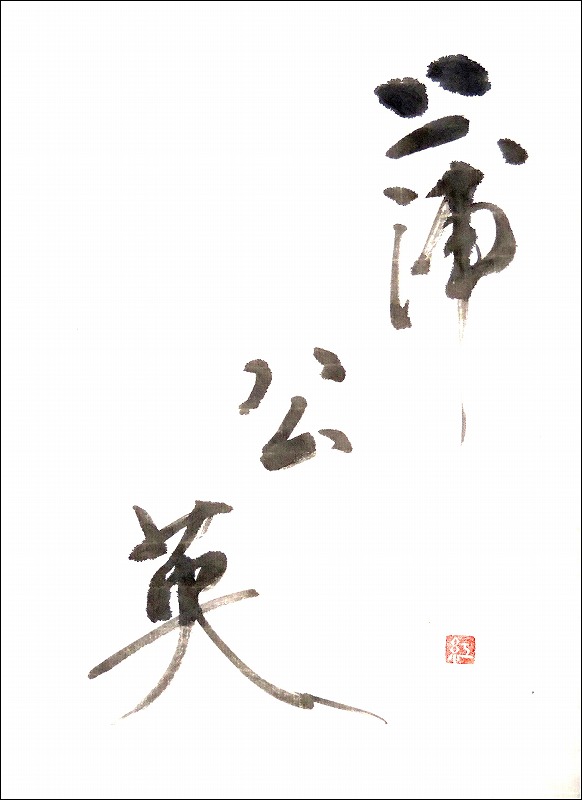 蒲公英